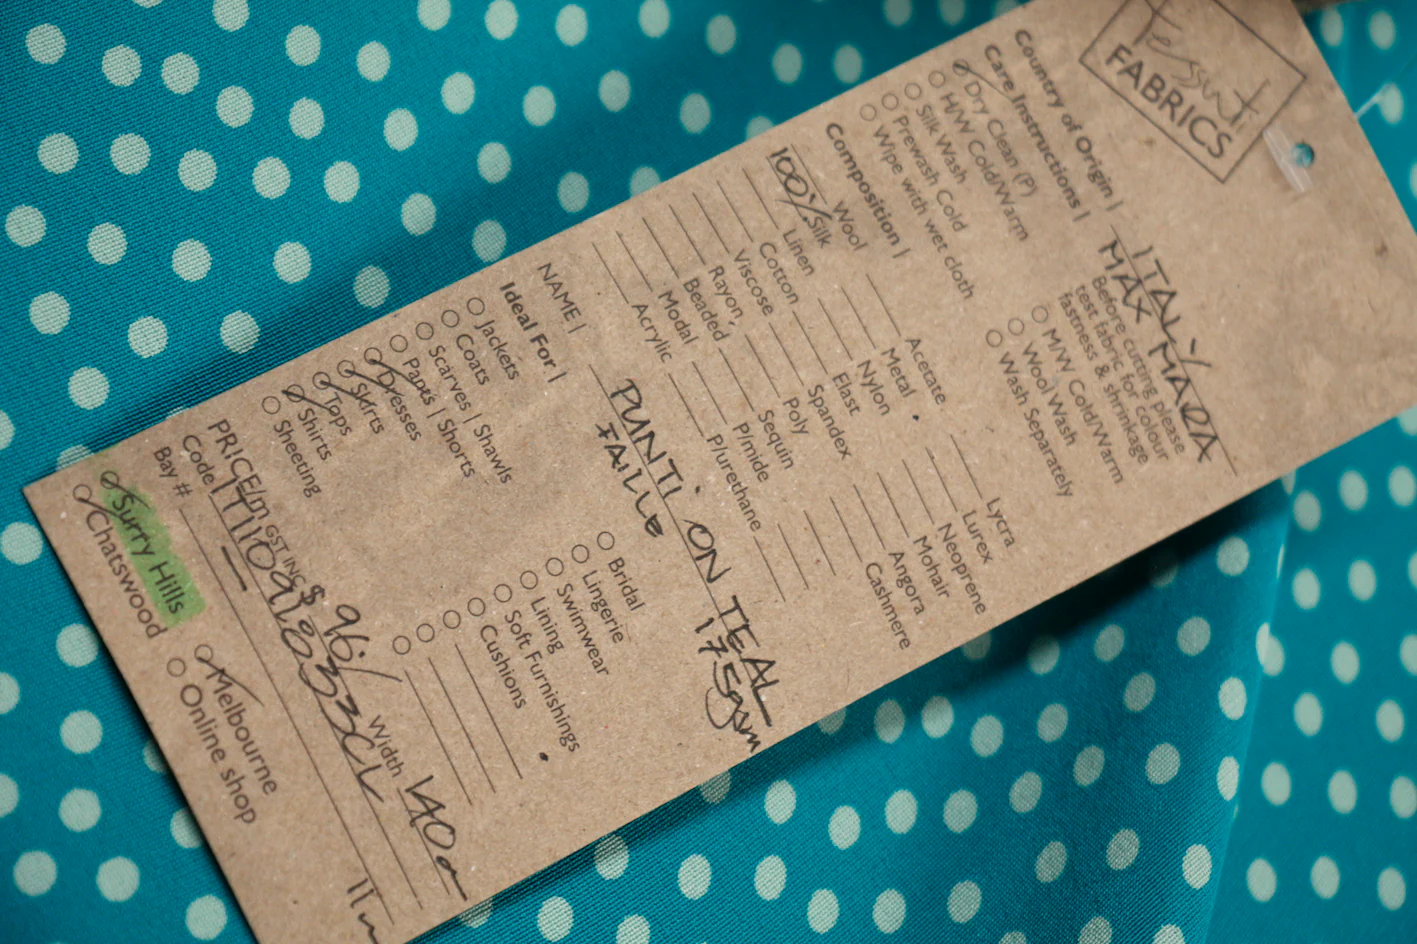 Tessuti
FABRICS
Country of Origin | ITALY/
MAX MARA
Care Instructions |
Before cutting please
test fabric for colour
fastness & shrinkage
Dry Clean (P)
H/W Cold/Warm
M/W Cold/Warm
Silk Wash
Wool Wash
Prewash Cold
Wash Separately
Wipe with wet cloth
Composition |
Wool
Acetate
Lycra
100% Silk
Metal
Lurex
Linen
Nylon
Neoprene
Cotton
Elast
Mohair
Viscose
Spandex
Angora
Rayon
Poly
Cashmere
Beaded
Sequin
Modal
P/mide
Acrylic
P/urethane
NAME | PUNTI ON TEAL
FAILLE 175gsm
Ideal For |
Jackets
Bridal
Coats
Lingerie
Scarves | Shawls
Swimwear
Pants | Shorts
Lining
Dresses
Soft Furnishings
Skirts
Cushions
Tops
Shirts
Sheeting
PRICE/m GST INC $ 96/ Width 140cm
Code
Bay # 11m
Surry Hills
Melbourne
Chatswood
Online shop